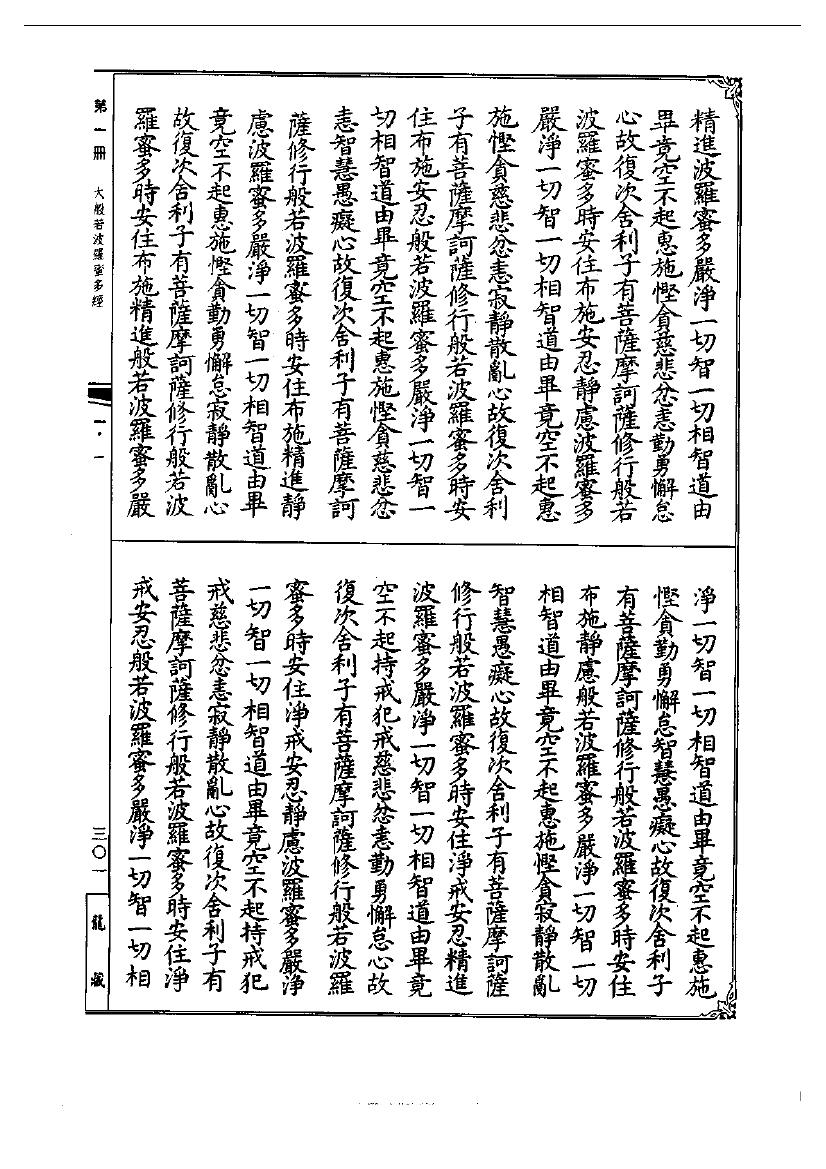 精進波羅蜜多嚴淨一切智一切相智道由
畢竟空不起惠施慳貪慈悲忿恚勤勇懈怠
心故復次舍利子有菩薩摩訶薩修行般若
波羅蜜多時安住布施安忍靜慮波羅蜜多
嚴淨一切智一切相智道由畢竟空不起惠
施慳貪慈悲忿恚寂靜散亂心故復次舍利
子有菩薩摩訶薩修行般若波羅蜜多時安
住布施安忍般若波羅蜜多嚴淨一切智一
切相智道由畢竟空不起惠施慳貪慈悲忿
恚智慧愚癡心故復次舍利子有菩薩摩訶
薩修行般若波羅蜜多時安住布施精進靜
慮波羅蜜多嚴淨一切智一切相智道由畢
竟空不起惠施慳貪勤勇懈怠寂靜散亂心
故復次舍利子有菩薩摩訶薩修行般若波
羅蜜多時安住布施精進般若波羅蜜多嚴
淨一切智一切相智道由畢竟空不起惠施
慳貪勤勇懈怠智慧愚癡心故復次舍利子
有菩薩摩訶薩修行般若波羅蜜多時安住
布施靜慮般若波羅蜜多嚴淨一切智一切
相智道由畢竟空不起惠施慳貪寂靜散亂
智慧愚癡心故復次舍利子有菩薩摩訶薩
修行般若波羅蜜多時安住淨戒安忍精進
波羅蜜多嚴淨一切智一切相智道由畢竟
空不起持戒犯戒慈悲忿恚勤勇懈怠心故
復次舍利子有菩薩摩訶薩修行般若波羅
蜜多時安住淨戒安忍靜慮波羅蜜多嚴淨
一切智一切相智道由畢竟空不起持戒犯
戒慈悲忿恚寂靜散亂心故復次舍利子有
菩薩摩訶薩修行般若波羅蜜多時安住淨
戒安忍般若波羅蜜多嚴淨一切智一切相
第一冊 大般若波羅蜜多經
一·一
三〇一
龍藏